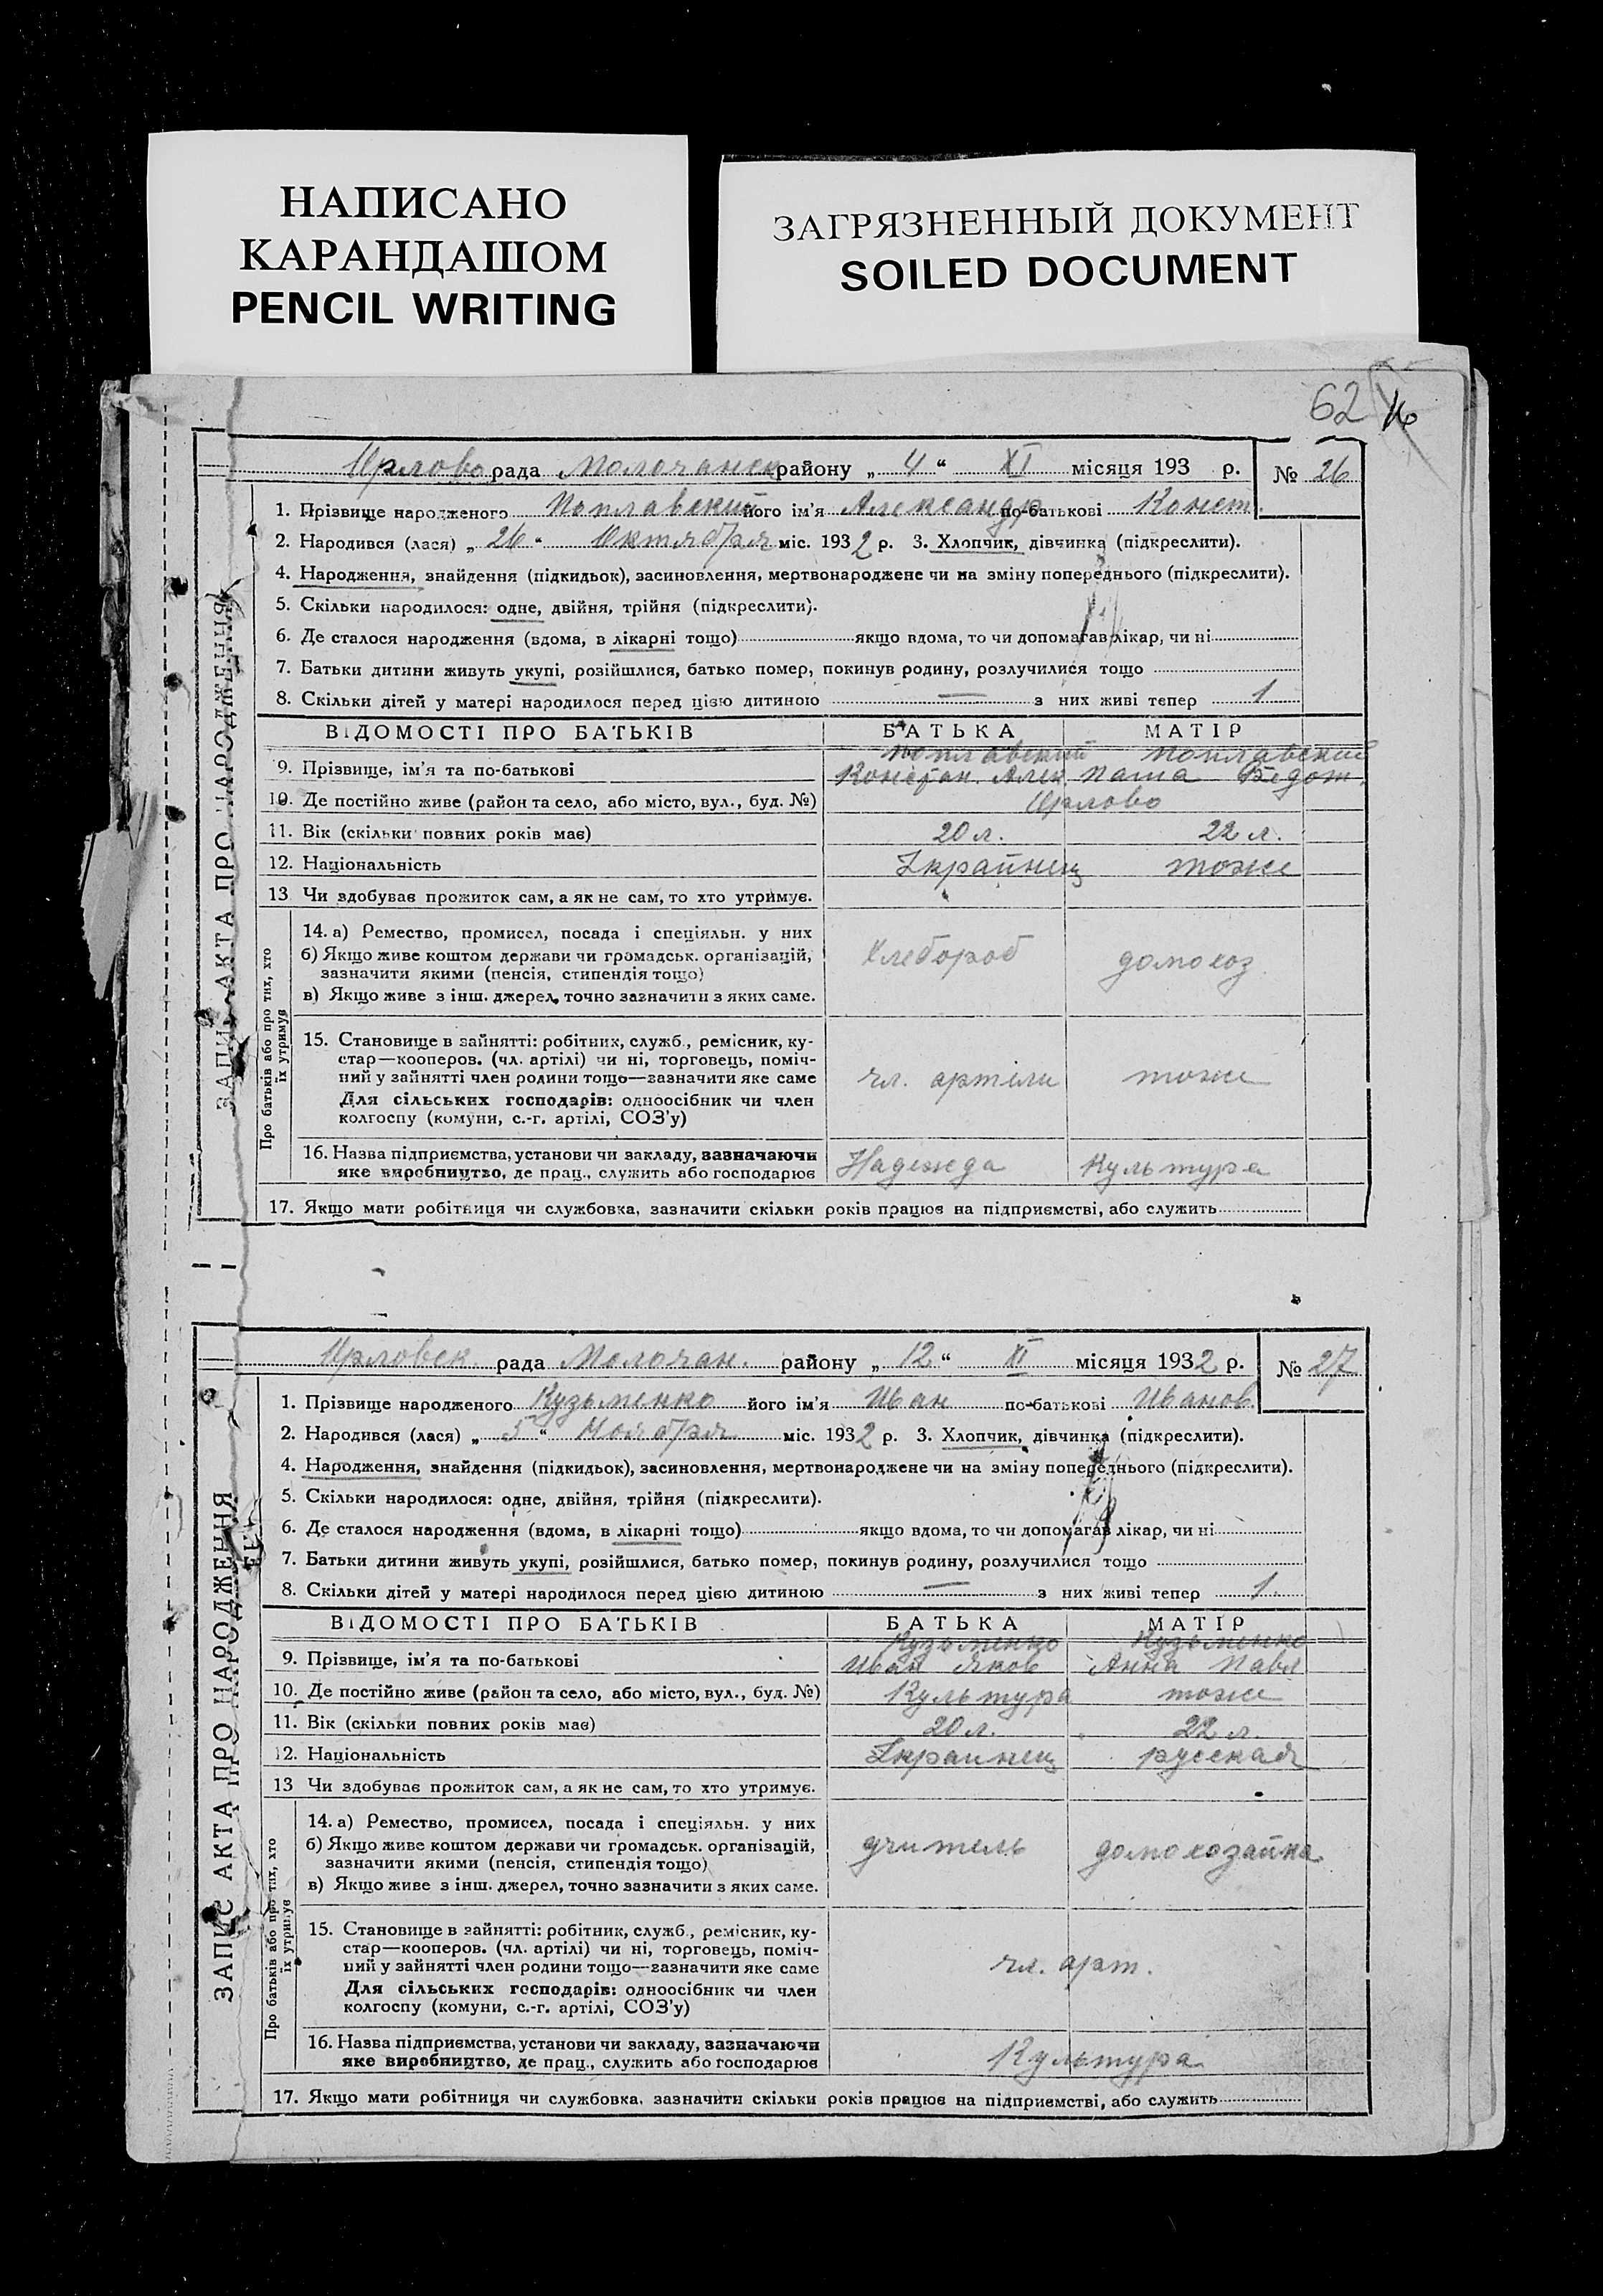 НАПИСАНО
КАРАНДАШОМ
PENCIL WRITING
ЗАГРЯЗНЕННЫЙ ДОКУМЕНТ
SOILED DOCUMENT
62
ЗАПИС АКТА ПРО НАРОДЖЕННЯ
Ирлово рада Молочанск району „ 4 “ XI місяця 193 р. № 26
1. Прізвище народженого Поплавский його ім'я Александр по-батькові Конст.
2. Народився (лася) „ 26 “ Октября міс. 1932 р. 3. Хлопчик, дівчинка (підкреслити).
4. Народження, знайдення (підкидьок), засиновлення, мертвонароджене чи на зміну попереднього (підкреслити).
5. Скільки народилося: одне, двійня, трійня (підкреслити).
6. Де сталося народження (вдома, в лікарні тощо) якщо вдома, то чи допомагав лікар, чи ні
7. Батьки дитини живуть укупі, розійшлися, батько помер, покинув родину, розлучилися тощо
8. Скільки дітей у матері народилося перед цією дитиною — з них живі тепер 1
ВІДОМОСТІ ПРО БАТЬКІВ БАТЬКА МАТІР
Поплавский Поплавский
9. Прізвище, ім'я та по-батькові Констан. Алек. Паша Федот.
10. Де постійно живе (район та село, або місто, вул., буд. №) Ирлово
11. Вік (скільки повних років має) 20 л. 22 л.
12. Національність Украинец тоже
13 Чи здобуває прожиток сам, а як не сам, то хто утримує.
Про батьків або про тих, хто їх утримує
14. а) Ремество, промисел, посада і спеціяльн. у них
б) Якщо живе коштом держави чи громадськ. організацій, хлебороб домохоз
зазначити якими (пенсія, стипендія тощо)
в) Якщо живе з інш. джерел, точно зазначити з яких саме.
15. Становище в зайнятті: робітник, служб., ремісник, ку-
стар—кооперов. (чл. артілі) чи ні, торговець, поміч-
ний у зайнятті член родини тощо—зазначити яке саме чл. артели тоже
Для сільських господарів: одноосібник чи член
колгоспу (комуни, с.-г. артілі, СОЗ'у)
16. Назва підприємства, установи чи закладу, зазначаючи
яке виробництво, де прац., служить або господарює Надежда Культура
17. Якщо мати робітниця чи службовка, зазначити скільки років працює на підприємстві, або служить
ЗАПИС АКТА ПРО НАРОДЖЕННЯ
Ирловск. рада Молочан. району „ 12 “ XI місяця 1932 р. № 27
1. Прізвище народженого Кузьменко його ім'я Иван по-батькові Иванов.
2. Народився (лася) „ 5 “ Ноября міс. 1932 р. 3. Хлопчик, дівчинка (підкреслити).
4. Народження, знайдення (підкидьок), засиновлення, мертвонароджене чи на зміну попереднього (підкреслити).
5. Скільки народилося: одне, двійня, трійня (підкреслити).
6. Де сталося народження (вдома, в лікарні тощо) якщо вдома, то чи допомагав лікар, чи ні
7. Батьки дитини живуть укупі, розійшлися, батько помер, покинув родину, розлучилися тощо
8. Скільки дітей у матері народилося перед цією дитиною — з них живі тепер 1.
ВІДОМОСТІ ПРО БАТЬКІВ БАТЬКА МАТІР
Кузьменко Кузьменко
9. Прізвище, ім'я та по-батькові Иван Яков Анна Павл
10. Де постійно живе (район та село, або місто, вул., буд. №) Культура тоже
11. Вік (скільки повних років має) 20 л. 22 л.
12. Національність Украинец русская
13 Чи здобуває прожиток сам, а як не сам, то хто утримує.
Про батьків або про тих, хто їх утримує
14. а) Ремество, промисел, посада і спеціяльн. у них
б) Якщо живе коштом держави чи громадськ. організацій, учитель домохозайка
зазначити якими (пенсія, стипендія тощо)
в) Якщо живе з інш. джерел, точно зазначити з яких саме.
15. Становище в зайнятті: робітник, служб., ремісник, ку-
стар—кооперов. (чл. артілі) чи ні, торговець, поміч-
ний у зайнятті член родини тощо—зазначити яке саме чл. арт.
Для сільських господарів: одноосібник чи член
колгоспу (комуни, с.-г. артілі, СОЗ'у)
16. Назва підприємства, установи чи закладу, зазначаючи
яке виробництво, де прац., служить або господарює Культура
17. Якщо мати робітниця чи службовка, зазначити скільки років працює на підприємстві, або служить